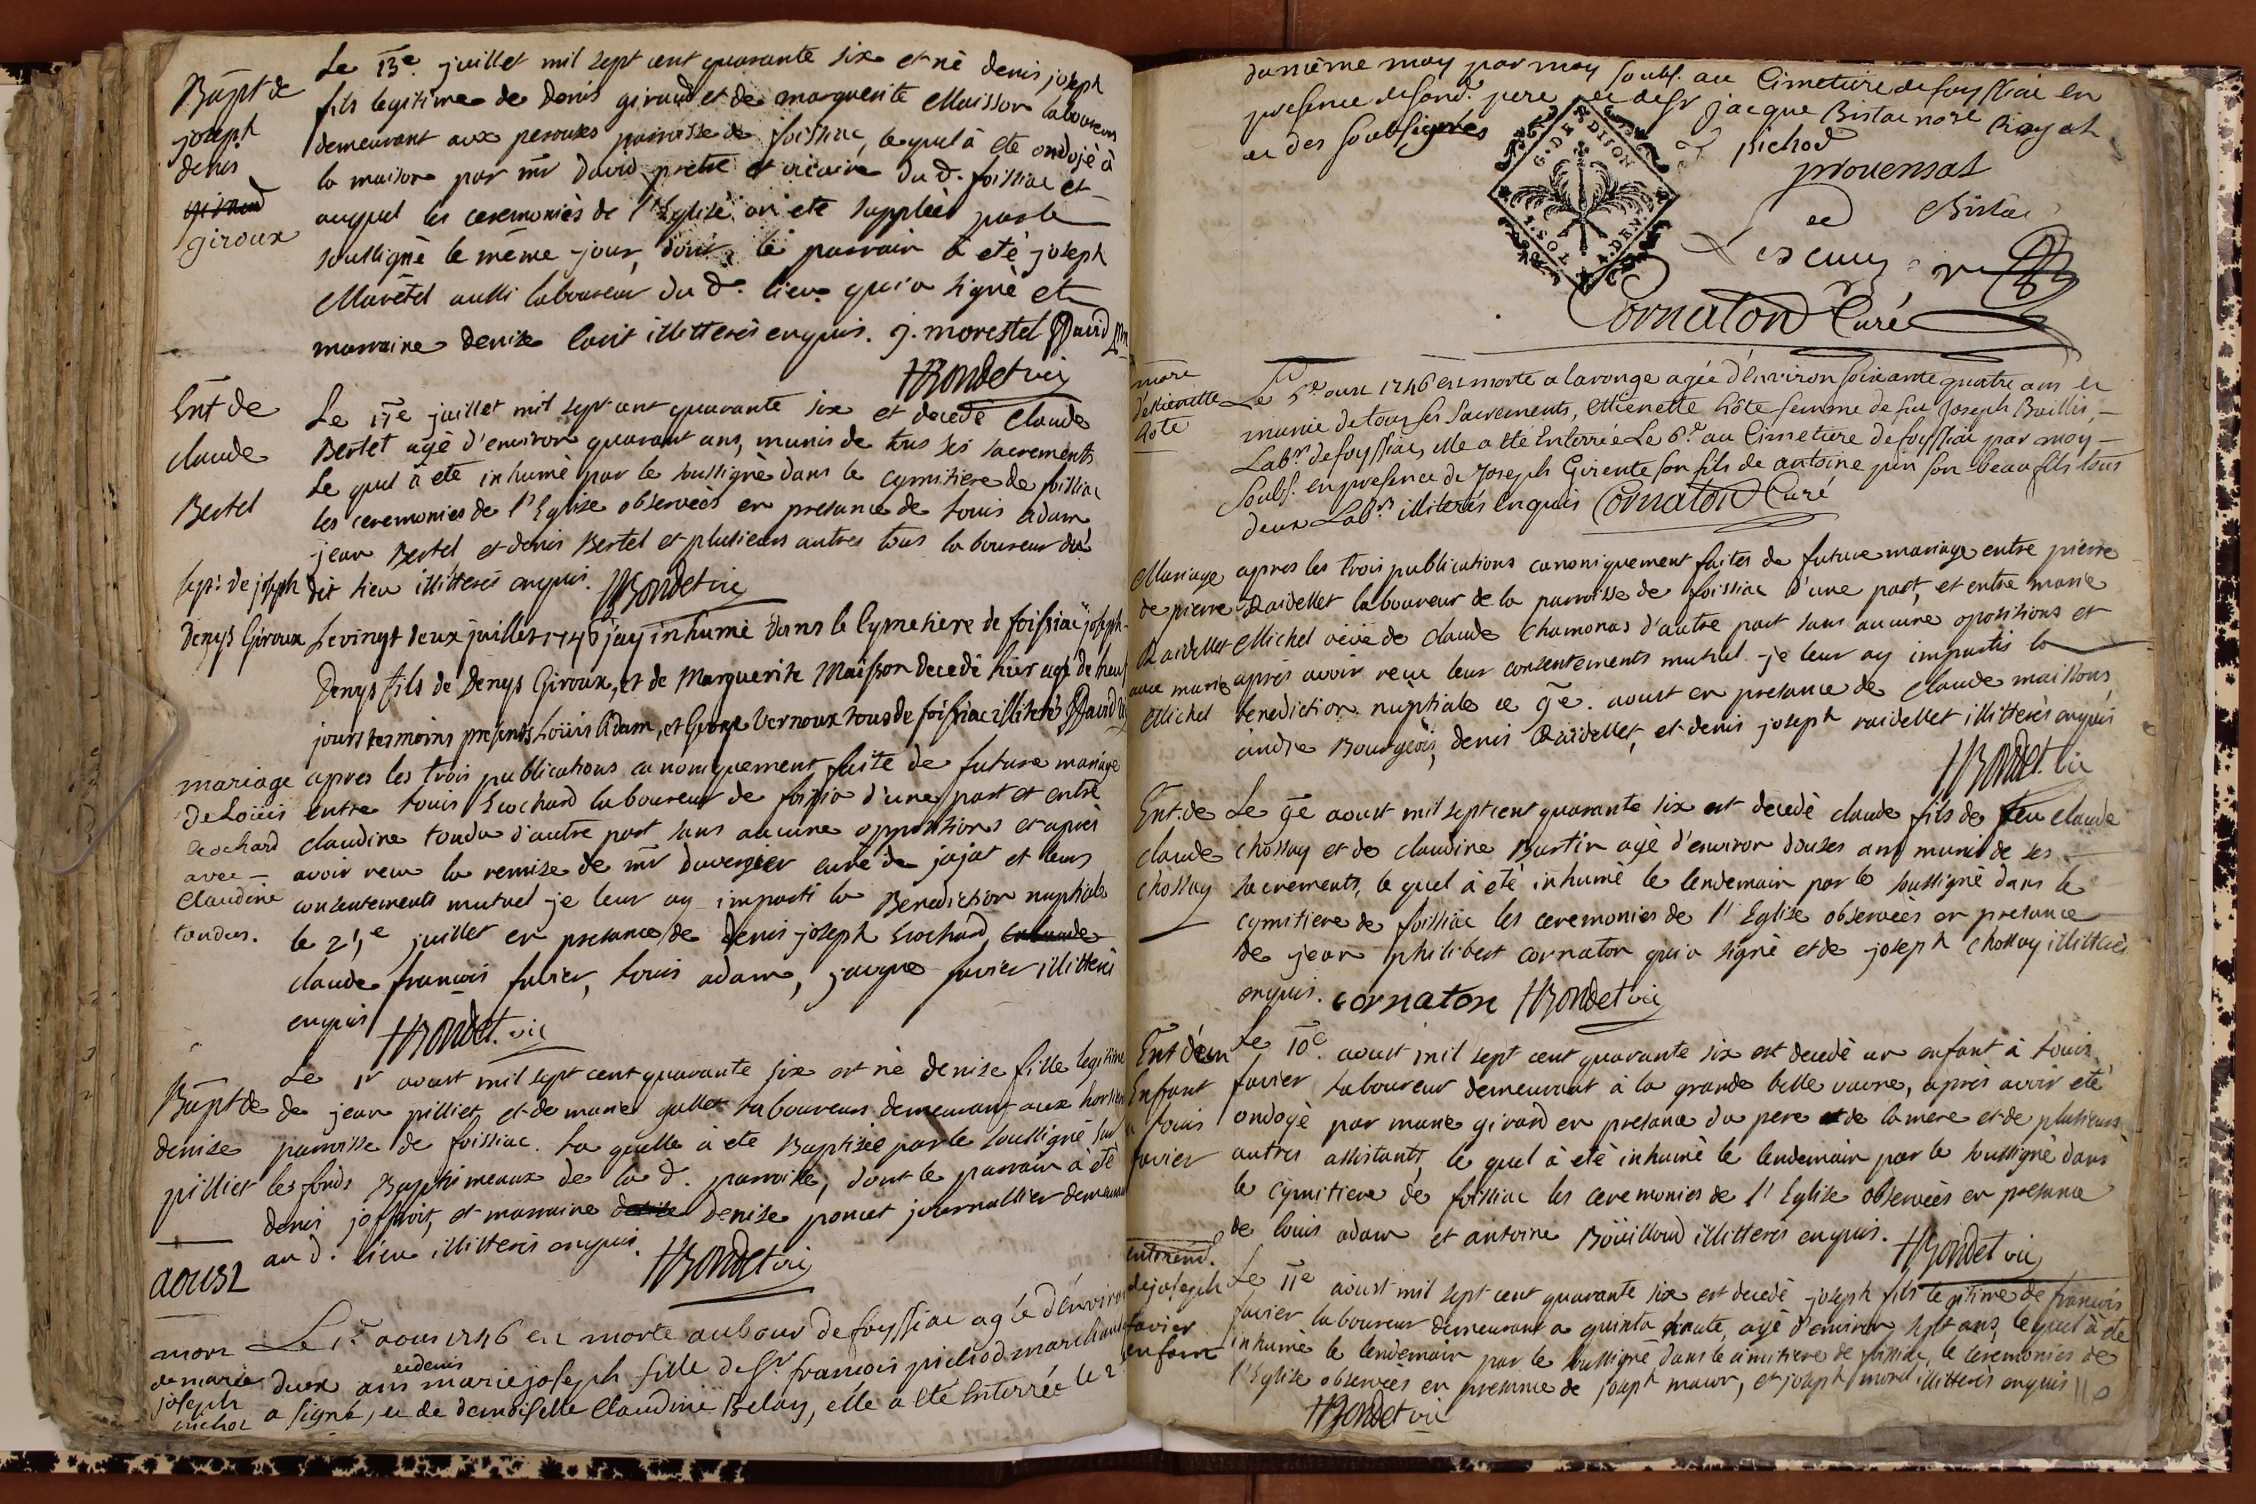 Bapt de
joseph
denis
giroux
Le 13e juillet mil sept cent quarante six et né denis joseph
fils legitime de denis giraud et de marguerite Maisson laboureur
demeurant aux perouses parroisse de foissiac, le quel à eté ondojé à
la maison par mr David pretre et vicaire du d. foissiac et
auquel les ceremoniés de l'Eglise on eté supplées par le
soussigné le même jour, dont le parrain à eté joseph
Marétel aussi laboureur du d. lieu qui a signé et
marraine denise illitterés enquis. j. morestel David
HBondet vic
Ent de
claude
Bertel
Le 17e juillet mil sept cent quarante six et decedé Claude
Bertet agé d'environ quarant ans, munis de tous ses sacrements
Le quel à eté inhumé par le soussigné dans le cymitiere de foissiac
les ceremonies de l'Eglise observeés en presance de Louis Adam
jean Bertel et denis Bertel et plusieurs autres tous laboureur du
dit lieu illitterés enquis. HBondet vic
sept. de joseph
Denys Giroux
Le vingt deux juillet 1746 j'ay inhumé dans le Cymetiere de foissiac joseph
Denys fils de Denys Giroux, et de Marguerite Maisson decedé hier agé de neuf
jours tesmoins presents Loüis Adam, et George Vernoux tous de foissiac illiterés David
mariage
De Loüis
Ecochard
avec
Claudine
tondu.
apres les trois publications canoniquement faite de future mariage
entre Louis Ecochard laboureur de foissia d'une part et entre
claudine tondu d'autre part sans aucune oppositions et après
avoir receu la remise de mr duvernier curé de jajat et leurs
consentements mutuel je leur ay imparti la Benediction nuptiale
le 21e juillet en presance de denis joseph Ecochard,
claude francois favier, Louis adam, jacque favier illitterés
enquis HBondet vic
Bapt de
denise
pilliet
Le 1r aoust mil sept cent quarante six est né denise fille legitime
de jean pilliet et de marie gallet laboureurs demeurant aux
parroisse de foissiac. La quelle à eté Baptisée par le soussigné sur
les fonds Baptimeaux de la d. parroisse, dont le parrain à eté
denis joffroit, et marraine denise poncet journallier demeurant
au d. lieu illitterés enquis. HBondet vic
aoust
mort
de marie
joseph
pichod
Le 1r aous 1746 est morte au bour de foyssiac agée d'environ
deux ans marie joseph fille de Sr francois pichod marchand
et denis
a signé, et de demoiselle Claudine Belay, elle a eté Enterrée le 2
du même moy par moy soubs. au Cimetiere de foyssiac en
presence desond. pere et de Sr Jacque Bistac nore Royal
et des soubsignés
G. DE DIJON
pichod
provensal
Bistac
Cornaton Curé
mort
d'Etienette
hote
Le 5e oust 1746 est morte a lavonge agée d'environ soixante quatre ans et
munie de tous ses Sacrements, Etienette hôte femme de feu Joseph Baillis,
Labr de foyssiac, elle a eté Enterrée Le 6e au Cimetiere de foyssiac par moy
Soubs. en presence de Joseph Girente son fils de antoine pin son beau fils tous
deux Labrs illiterés Enquis Cornaton Curé
Mariage
de pierre
Raidellet
avec marie
Michel
apres les trois publications canoniquement faites de future mariage entre pierre
Raidellet laboureur de la parroisse de foissiac d'une part, et entre marie
Michel veve de claude Chamonas d'autre part sans aucune opositions et
après avoir receu leur consentements mutuel je leur ay impartis la
benediction nuptiale ce 9e aoust en presance de claude maissons,
andre Bourgeois, denis Raidellet, et denis joseph raidellet illitterés enquis
HBondet. vic
Ent. de
claude
chossay
Le 9e aoust mil sept cent quarante six est decedé claude fils de feu claude
chossay et de claudine Bastin agé d'environ douses ans munis de ses
sacrements, le quel à eté inhumé le lendemain par le soussigné dans le
cymitiere de foissiac les ceremonies de l'Eglise observeés en presance
de jean philibert cornaton qui a signé et de joseph chossay illitterés
enquis. cornaton HBondet vic
Ent d'un
Enfant
a Louis
favier
Le 10e aoust mil sept cent quarante six est decedé un enfant à Louis
favier laboureur demeurant à la grande belle vavre, après avoir eté
ondoyé par marie girard en presance du pere et de la mere et de plusieurs
autres assistants, le quel à eté inhumé le lendemain par le soussigné dans
le cymitiere de foissiac les ceremonies de l'Eglise observeés en presance
de Louis adam et antoine Boüilloud illitterés enquis. HBondet vic
de joseph
favier
enfant
Le 11e aoust mil sept cent quarante six est decedé joseph fils legitime de francois
favier laboureur demeurant a quinta haute, agé d'environ sept ans, le quel à eté
inhumé le lendemain par le soussigné dans le cimitiere de foissiac, le ceremonies de
l'Eglise observees en presance de joseph maior, et joseph morel illitterés enquis
HBondet vic